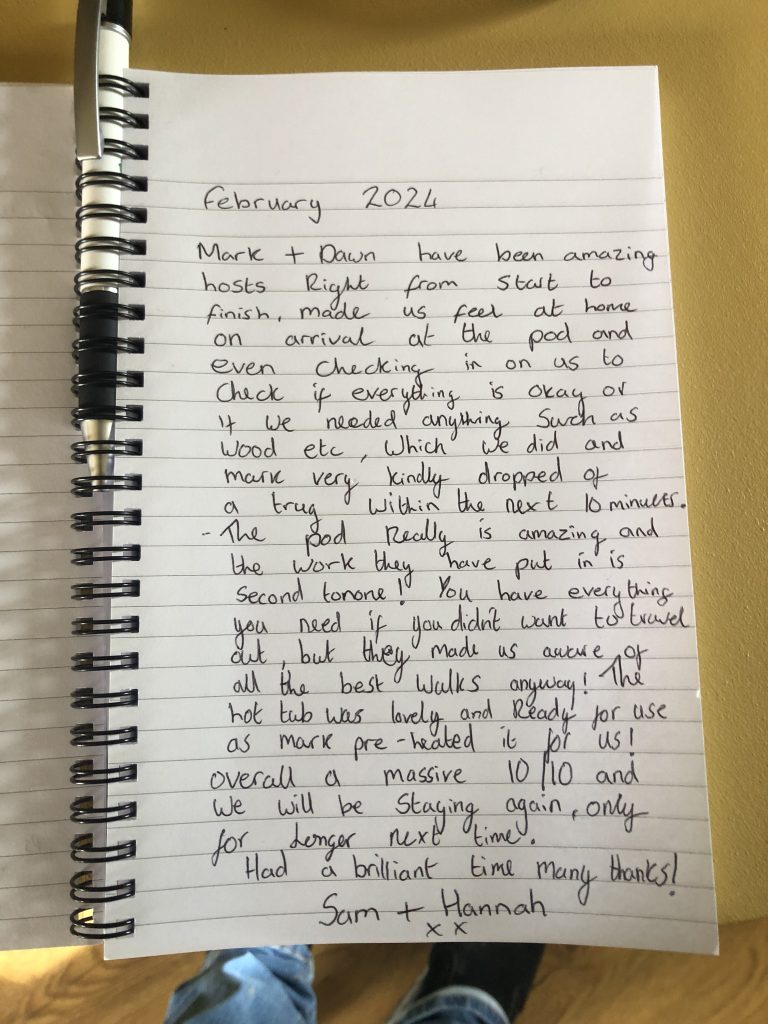 February 2024
Mark + Dawn have been amazing
hosts Right from Start to
finish, made us feel at home
on arrival at the pod and
even Checking in on us to
Check if everything is okay or
If we needed anything Such as
wood etc, Which we did and
mark very kindly dropped of
a trug Within the next 10 minuets.
- The pod Really is amazing and
the work they have put in is
Second tonone! You have everything
you need if you didn't want to travel
out, but they made us aware of
all the best Walks anyway! The
hot tub was lovely and Ready for use
as mark pre-heated it for us!
overall a massive 10/10 and
We will be Staying again, only
for Longer next time.
Had a brilliant time many thanks!
Sam + Hannah
x x